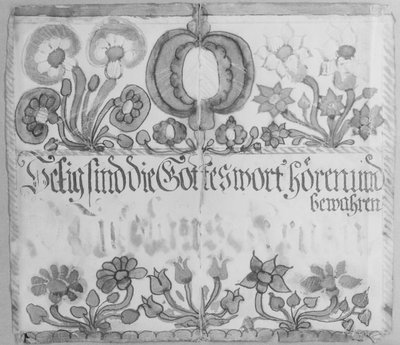 Selig sind die Gottes wort hören und
bewahren